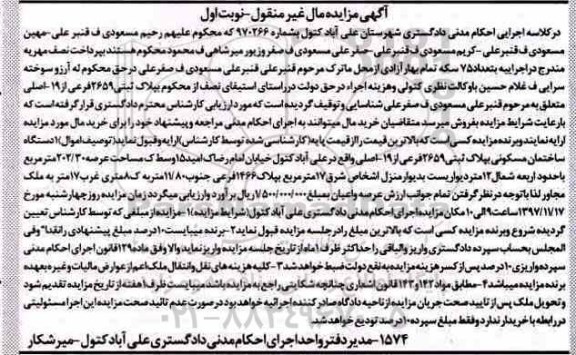 آگهی مزایده مال غیر منقول-نوبت اول
در کلاسه اجرایی احکام مدنی دادگستری شهرستان علی آباد کتول بشماره ۹۷۰۲۶۶ که محکوم علیهم رحیم مسعودی ف قنبر علی-مهین
مسعودی ف قنبرعلی-کریم مسعودی ف قنبرعلی-صفر علی مسعودی ف صفر وزیور میرشاهی ف محمود محکوم هستند بپرداخت نصف مهریه
مندرج در اجراییه بتعداد ۷۵ سکه تمام بهار آزادی از محل ماترک مرحوم قنبرعلی قنبرعلی مسعودی ف صفرعلی در حق محکوم له آرزو سوخته
سرایی ف غلام حسین باوکالت نظری کتولی وهزینه اجراء در حق دولت در راستای استیفای نصف از محکوم بپلاک ثبتی ۲۶۵۹فرعی از ۱۹- اصلی
متعلق به مرحوم قنبرعلی مسعودی ف صفرعلی شناسایی و توقیف گردیده است که مورد ارزیابی کارشناس محترم دادگستری قرار گرفته است که
با رعایت شرایط مزایده بفروش میرسد متقاضیان خرید مال میتوانند به اجرای احکام مدنی مراجعه و پیشنهاد خود را برای خرید مال مورد مزایده
ارایه نمایند وبرنده مزایده کسی است که بالاترین قیمت را از قیمت پایه (کارشناسی شده توسط کارشناس) ارایه وقبول نماید (توصیف اموال) ۱دستگاه
ساختمان مسکونی بپلاک ثبتی ۲۶۵۹فرعی از ۱۹-اصلی واقع در علی آباد کتول خیابان امام رضا ک امید ۱۵ وسط ک مساحت عرصه ۲۰۲/۳۰ متر مربع
با حدود اربعه شمال ۱۲ متر دیواریست بدیوار منزل اشخاص شرق ۱۷متر مربع بپلاک ۱۴۶۶ فرعی جنوب ۱۷/۸۰ متر به ک ۸متری غرب ۱۷متر به ملک
مجاور لذا باتوجه در نظر گرفتن تمام جوانب ارزش عرصه واعیان بمبلغ ۷۵۰۰/۰۰۰/۰۰۰ ریال برآورد وارزیابی میگردد زمان مزایده روز چهارشنبه مورخ
۱۳۹۷/۱۱/۱۷ ساعت ۹الی ۱۰ مکان مزایده اجرای احکام مدنی دادگستری علی آباد کتول (شرایط مزایده) ۱-مزایده از مبلغی که توسط کارشناس تعیین
گردیده شروع وبرنده مزایده کسی است که بالاترین مبلغ را در جلسه مزایده قبول نماید ۲-برنده میبایست ۱۰درصد مبلغ پیشنهادی رانقدا" وفی
المجلس بحساب سپرده دادگستری واریز والباقی را حداکثر ظرف ۱ماه از تاریخ جلسه مزایده واریز نماید والا وفق ماده ۱۲۹قانون اجرای احکام مدنی
سپرده واریزی ۱۰درصد پس از کسر هزینه مزایده به نفع دولت ضبط خواهد شد ۳-کلیه هزینه های نقل وانتقال ملک اعم از عوارض مالیات وغیره بعهده
برنده مزایده میباشد ۴-مطابق مواد ۱۴۲و۱۴۳ قانون اشعاری چنانچه شکایتی راجع به مزایده باشد میبایست ظرف ۱هفته از تاریخ مزایده تقدیم شود
و تحویل ملک پس از تایید صحت جریان مزایده از ناحیه دادگاه صادر کننده اجرائیه خواهد بود در صورت عدم تائید صحت مزایده این اجرا مسئولیتی
در رابطه با خریدار ندارد و فقط مبلغ سپرده ۱۰درصد تودیع خواهد شد.
۱۵۷۴-مدیر دفتر واحد اجرای احکام مدنی دادگستری علی آباد کتول-میرشکار